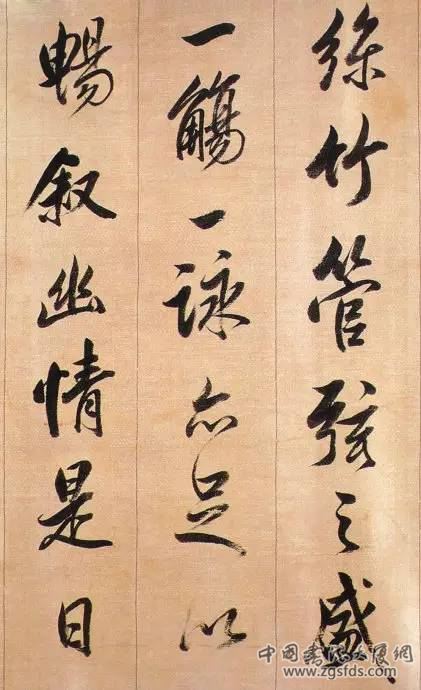 絲竹管弦之盛
一觴一詠亦足以
暢叙幽情是日
中国书法大厦网
www.zgsfds.com